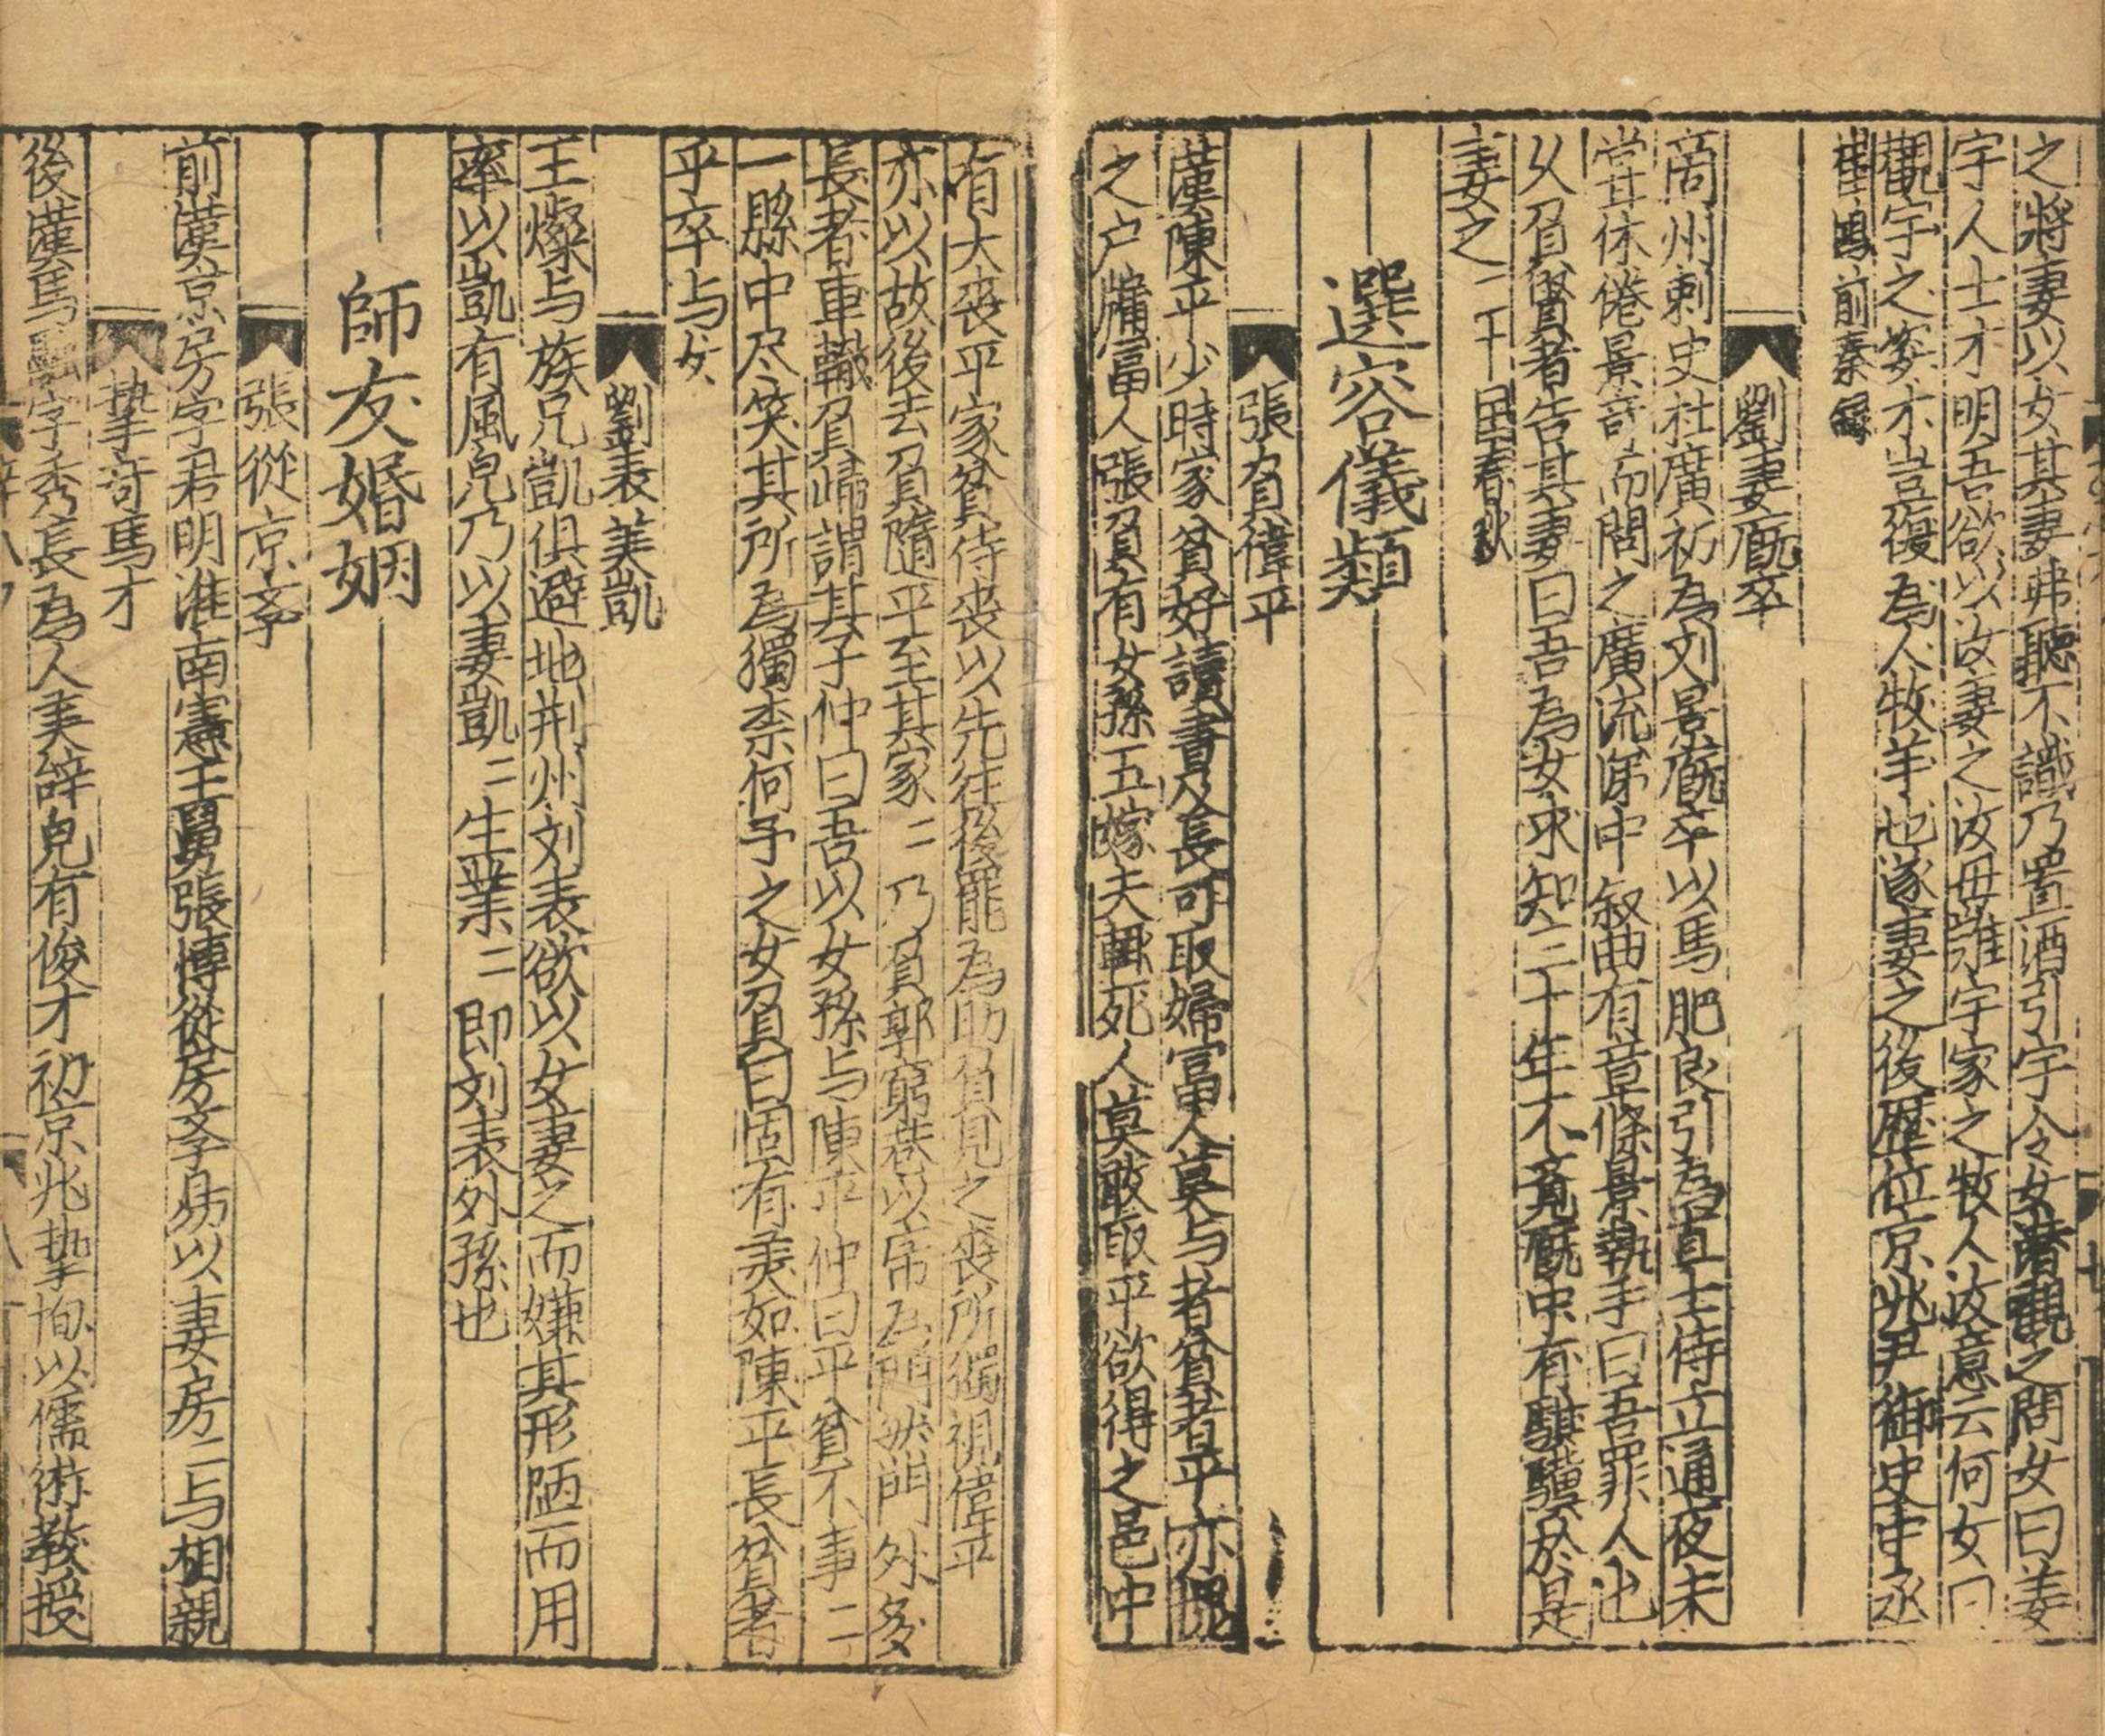 之將妻以女其妻弗聽不識乃置酒引宇令女潛觀之問女曰姜
宇人士才明吾欲以汝妻之汝毋誰宇家之牧人汝意云何女曰
觀宇之姿才岂復為人牧羊也遂妻之後歷位京兆尹御史中丞
崔鴻前秦錄
劉妻廐卒
啇州刺史杜廣初為刘景廐卒以馬肥良引為直士侍立通夜未
甞休倦景竒而問之廣流涕中叙曲有章條景執手曰吾罪人也
以負賢者告其妻曰吾為女求知二十年不竟廐中有騏驥於是
妻之二十国春秋
選容儀類
張負偉平
漢陳平少時家貧好讀書及長可取婦富人莫与者貧者平亦愧
之户牖富人張負有女孫五嫁夫輙死人莫敢取平欲得之邑中
有大喪平家貧侍丧以先往後罷為助負見之丧所獨視偉平
亦以故後去負隨平至其家二乃負郭窮巷以席為門然門外多
長者車轍負歸謂其子仲曰吾以女孫与陳平仲曰平貧不事二
一縣中尽笑其所為獨柰何予之女負曰固有美如陳平長貧者
乎卒与女
劉表美凱
王燦与族兄凱俱避地荆州刘表欲以女妻之而嫌其形陋而用
率以凱有風皃乃以妻凱二生業二即刘表外孫也
師友婚姻
張從京斈
前漢京房字君明淮南憲王舅張博從房斈易以妻房二与相親
摯竒馬才
後漢馬融字秀長為人美辝皃有俊才初京兆摯恂以儒術教授